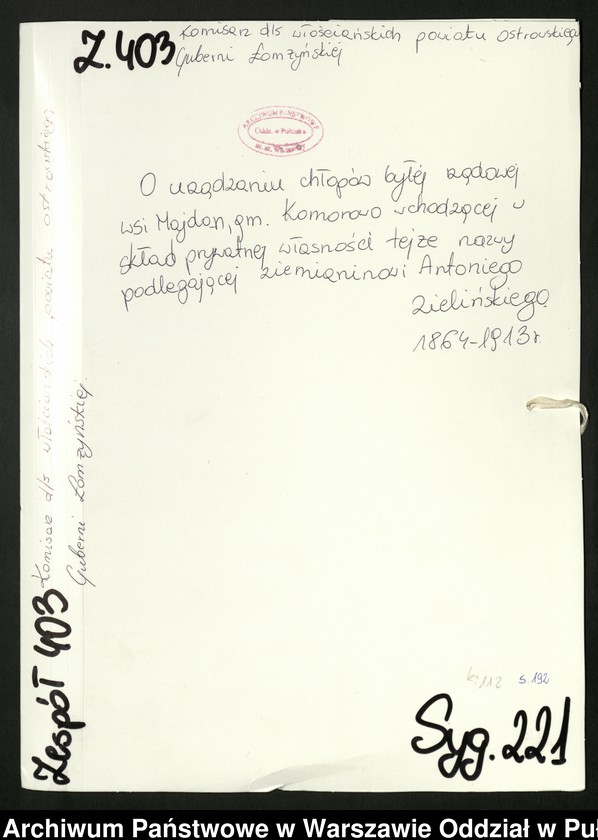 Z. 403 Komisarz d/s włościańskich powiatu Ostrowskiego
Guberni Łomżyńskiej
ARCHIWUM PAŃSTWOWE
Oddz. w Pułtusku
m. st. Warszawy
O urządzaniu chłopów byłéj rządowej
wsi Majdan, gm. Komorowo wchodzącej w
skład prywatnej własności tejże nazwy
podlegającej ziemianinowi Antoniego
Zielińskiego
1864-1913r.
Zespół 403 Komisarz d/s włościańskich powiatu ostrowskiego
Guberni Łomżyńskiej.
k. 112 s. 192
Syg. 221
Archiwum Państwowe w Warszawie Oddział w Puł